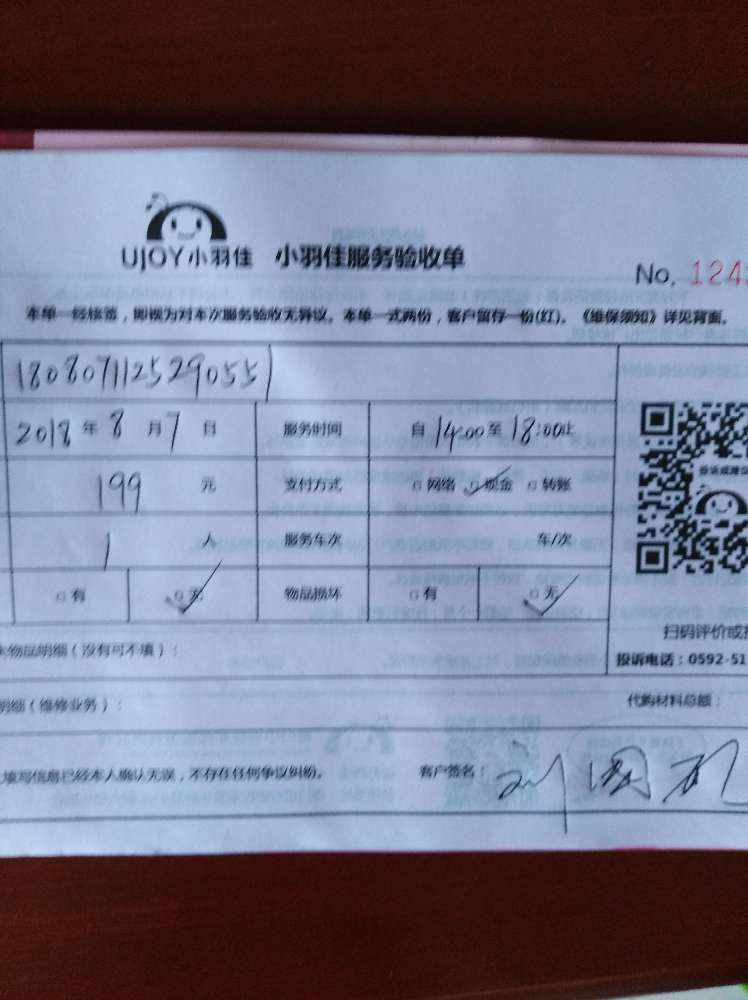 UJOY小羽佳 小羽佳服务验收单
No. 124
本单一经核签，即视为对本次服务验收无异议。本单一式两份，客户留存一份(红)。《维保须知》详见背面。
1808071125290551
2018年8月7日 服务时间 自14:00至18:00止
199元 支付方式 □网络 ☑现金 □转账
投诉或建议
1人 服务车次 车/次
□有 ☑无 物品损坏 □有 ☑无
扫码评价或
物品明细（没有可不填）：
投诉电话：0592-51
明细（维修业务）： 代购材料总额：
填写信息已经本人确认无误，不存在任何争议纠纷。 客户签名：刘国